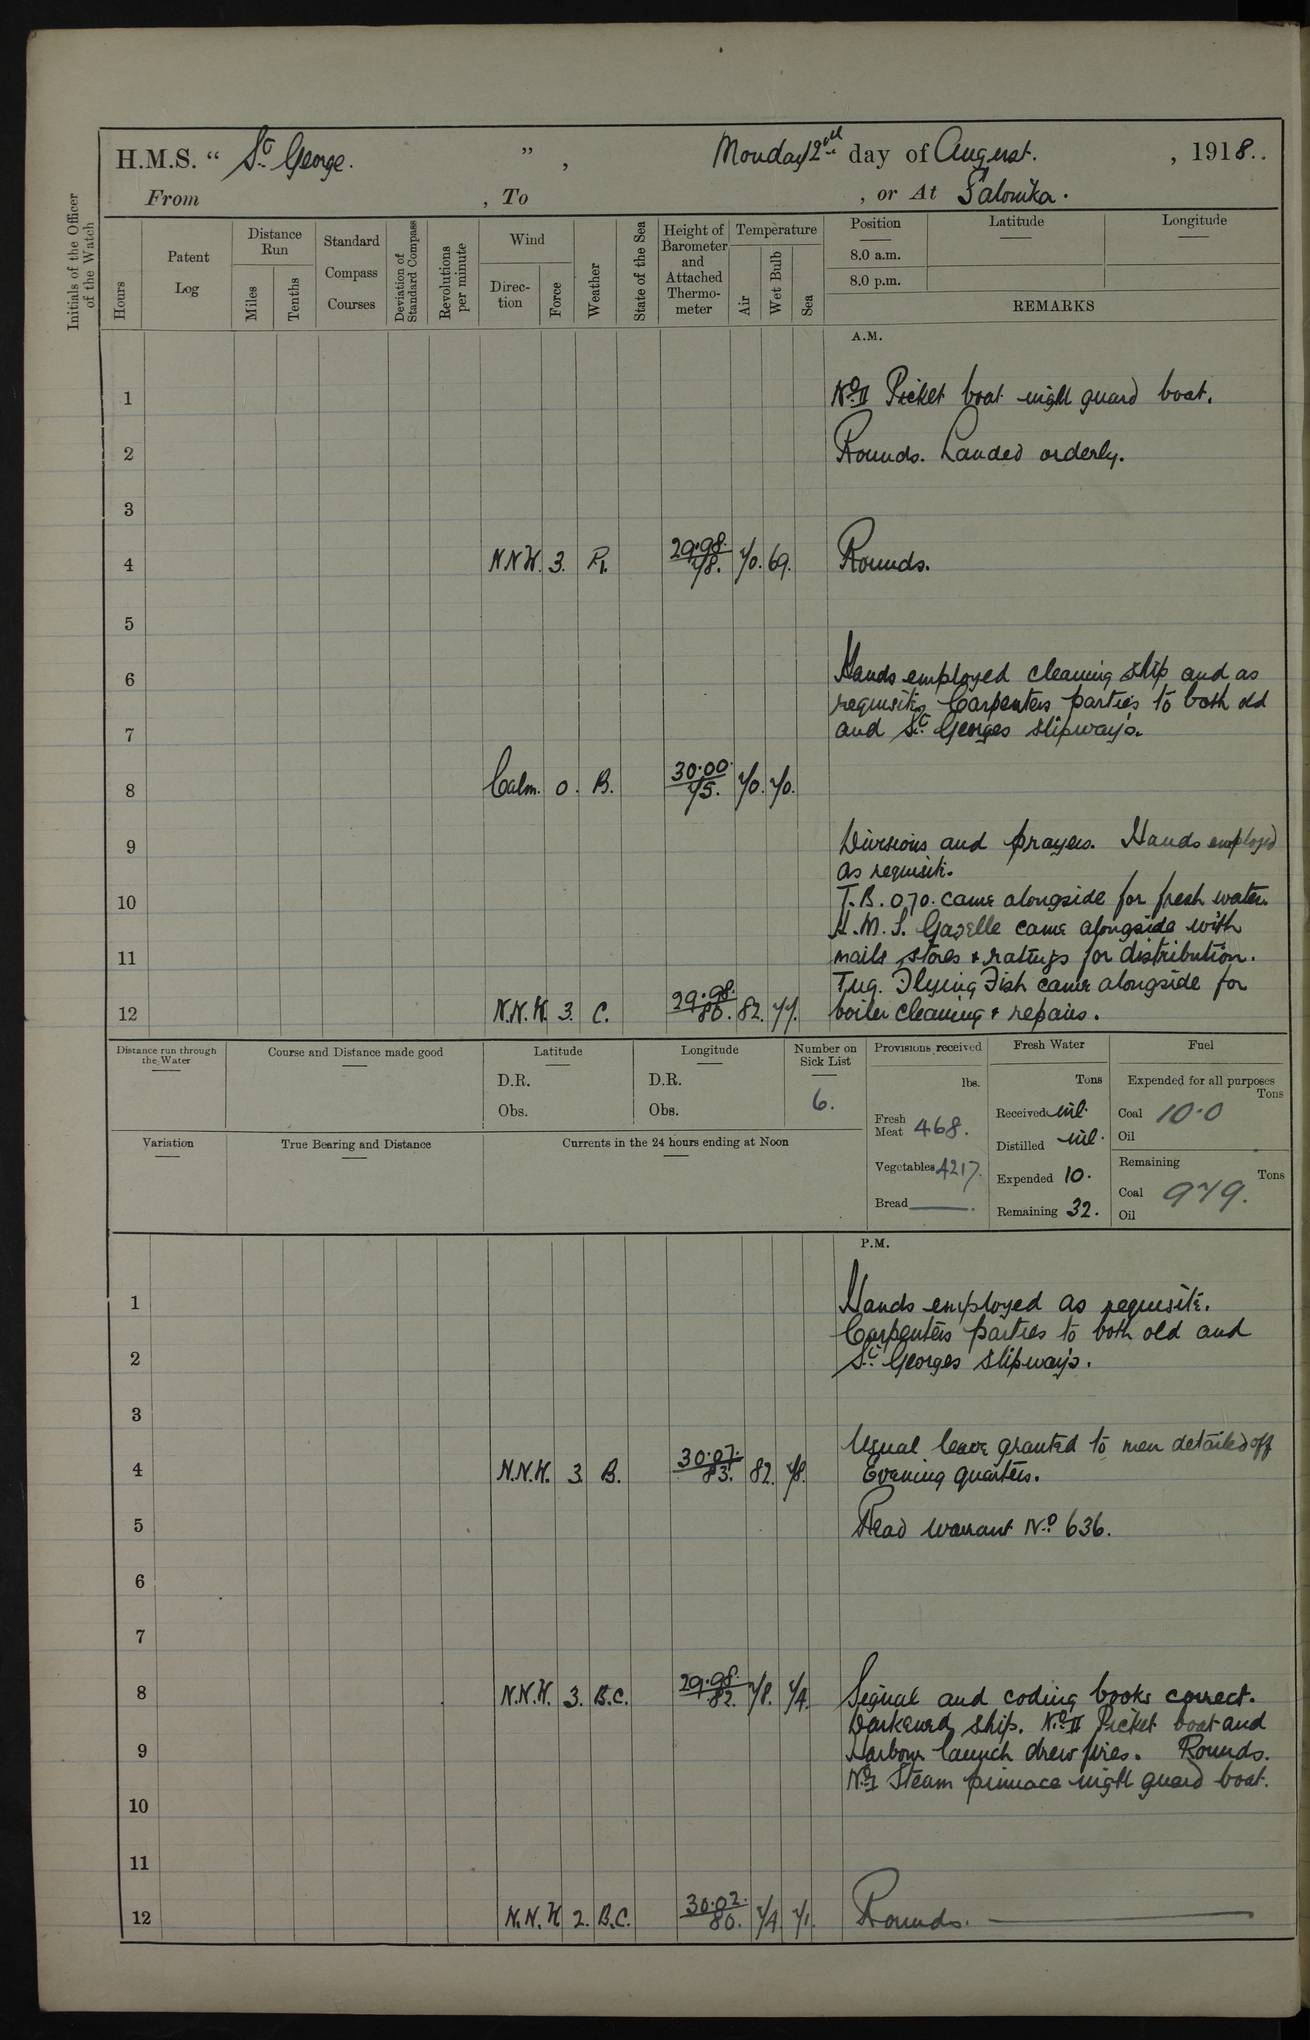 H.M.S. “ St George. ” , Monday 12nd day of August. , 1918..
From , To , or At Salonika.
Initials of the Officer of the Watch
Hours
Patent Log
Distance Run
Miles
Tenths
Standard Compass Courses
Deviation of Standard Compass
Revolutions per minute
Wind
Direction
Force
Weather
State of the Sea
Height of Barometer and Attached Thermometer
Temperature
Air
Wet Bulb
Sea
Position
8.0 a.m.
8.0 p.m.
Latitude
Longitude
REMARKS
A.M.
1 No II Picket boat night guard boat.
2 Rounds. Landed orderly.
3
4 N.N.W. 3. 29.98. 78. 70. 69. Rounds.
5
6 Hands employed cleaning ship and as
requisite, Carpenters parties to both old
7 and St Georges slipways.
8 Calm. 0. B. 30.00. 75. 70. 70.
9 Divisions and prayers. Hands employed
as requisite.
10 T.B. 070. came alongside for fresh water.
H.M.S. Gazelle came alongside with
11 mails stores & ratings for distribution.
Tug. Flying Fish came alongside for
12 N.N.W. 3. C. 29.98. 80. 82. 77. boiler cleaning & repairs.
Distance run through the Water
Course and Distance made good
Latitude
D.R.
Obs.
Longitude
D.R.
Obs.
Number on Sick List
6.
Provisions received
lbs.
Fresh Meat 468.
Vegetables 4217.
Bread
Fresh Water
Tons
Received nil.
Distilled nil.
Expended 10.
Remaining 32.
Fuel
Expended for all purposes
Tons
Coal 10.0
Oil
Remaining
Tons
Coal 979.
Oil
Variation
True Bearing and Distance
Currents in the 24 hours ending at Noon
P.M.
1 Hands employed as requisite.
Carpenters parties to both old and
2 St Georges slipways.
3
Usual leave granted to men detailed off
4 N.N.W. 3. B. 30.07. 83. 82. 78. Evening quarters.
5 Read warrant No 636.
6
7
8 N.N.W. 3. B.C. 29.98. 82. 78. 74. Signal and coding books correct.
Darkened ship. No II Picket boat and
9 Harbour launch drew fires. Rounds.
No I Steam pinnace night guard boat.
10
11
12 N.N.W 2. B.C. 30.02. 80. 74 71. Rounds.